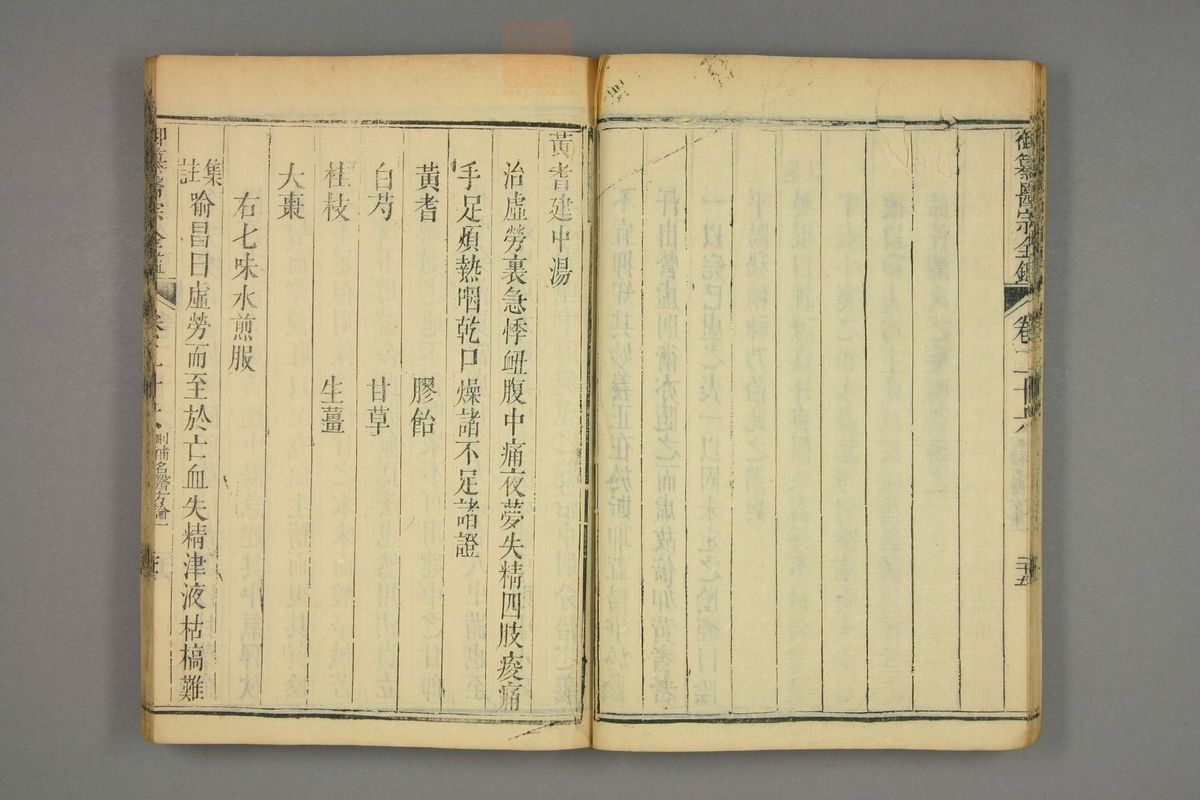 御纂醫宗金鑑 卷二十六 三十五
黃耆建中湯
治虛勞裏急悸衂腹中痛夜夢失精四肢痠痛
手足煩熱咽乾口燥諸不足諸證
黃耆 膠飴
白芍 甘草
桂枝 生薑
大棗
右七味水煎服
集註喻昌曰虛勞而至於亡血失精津液枯槁難
御纂醫宗金鑑 卷二十六 刪補名醫方論一